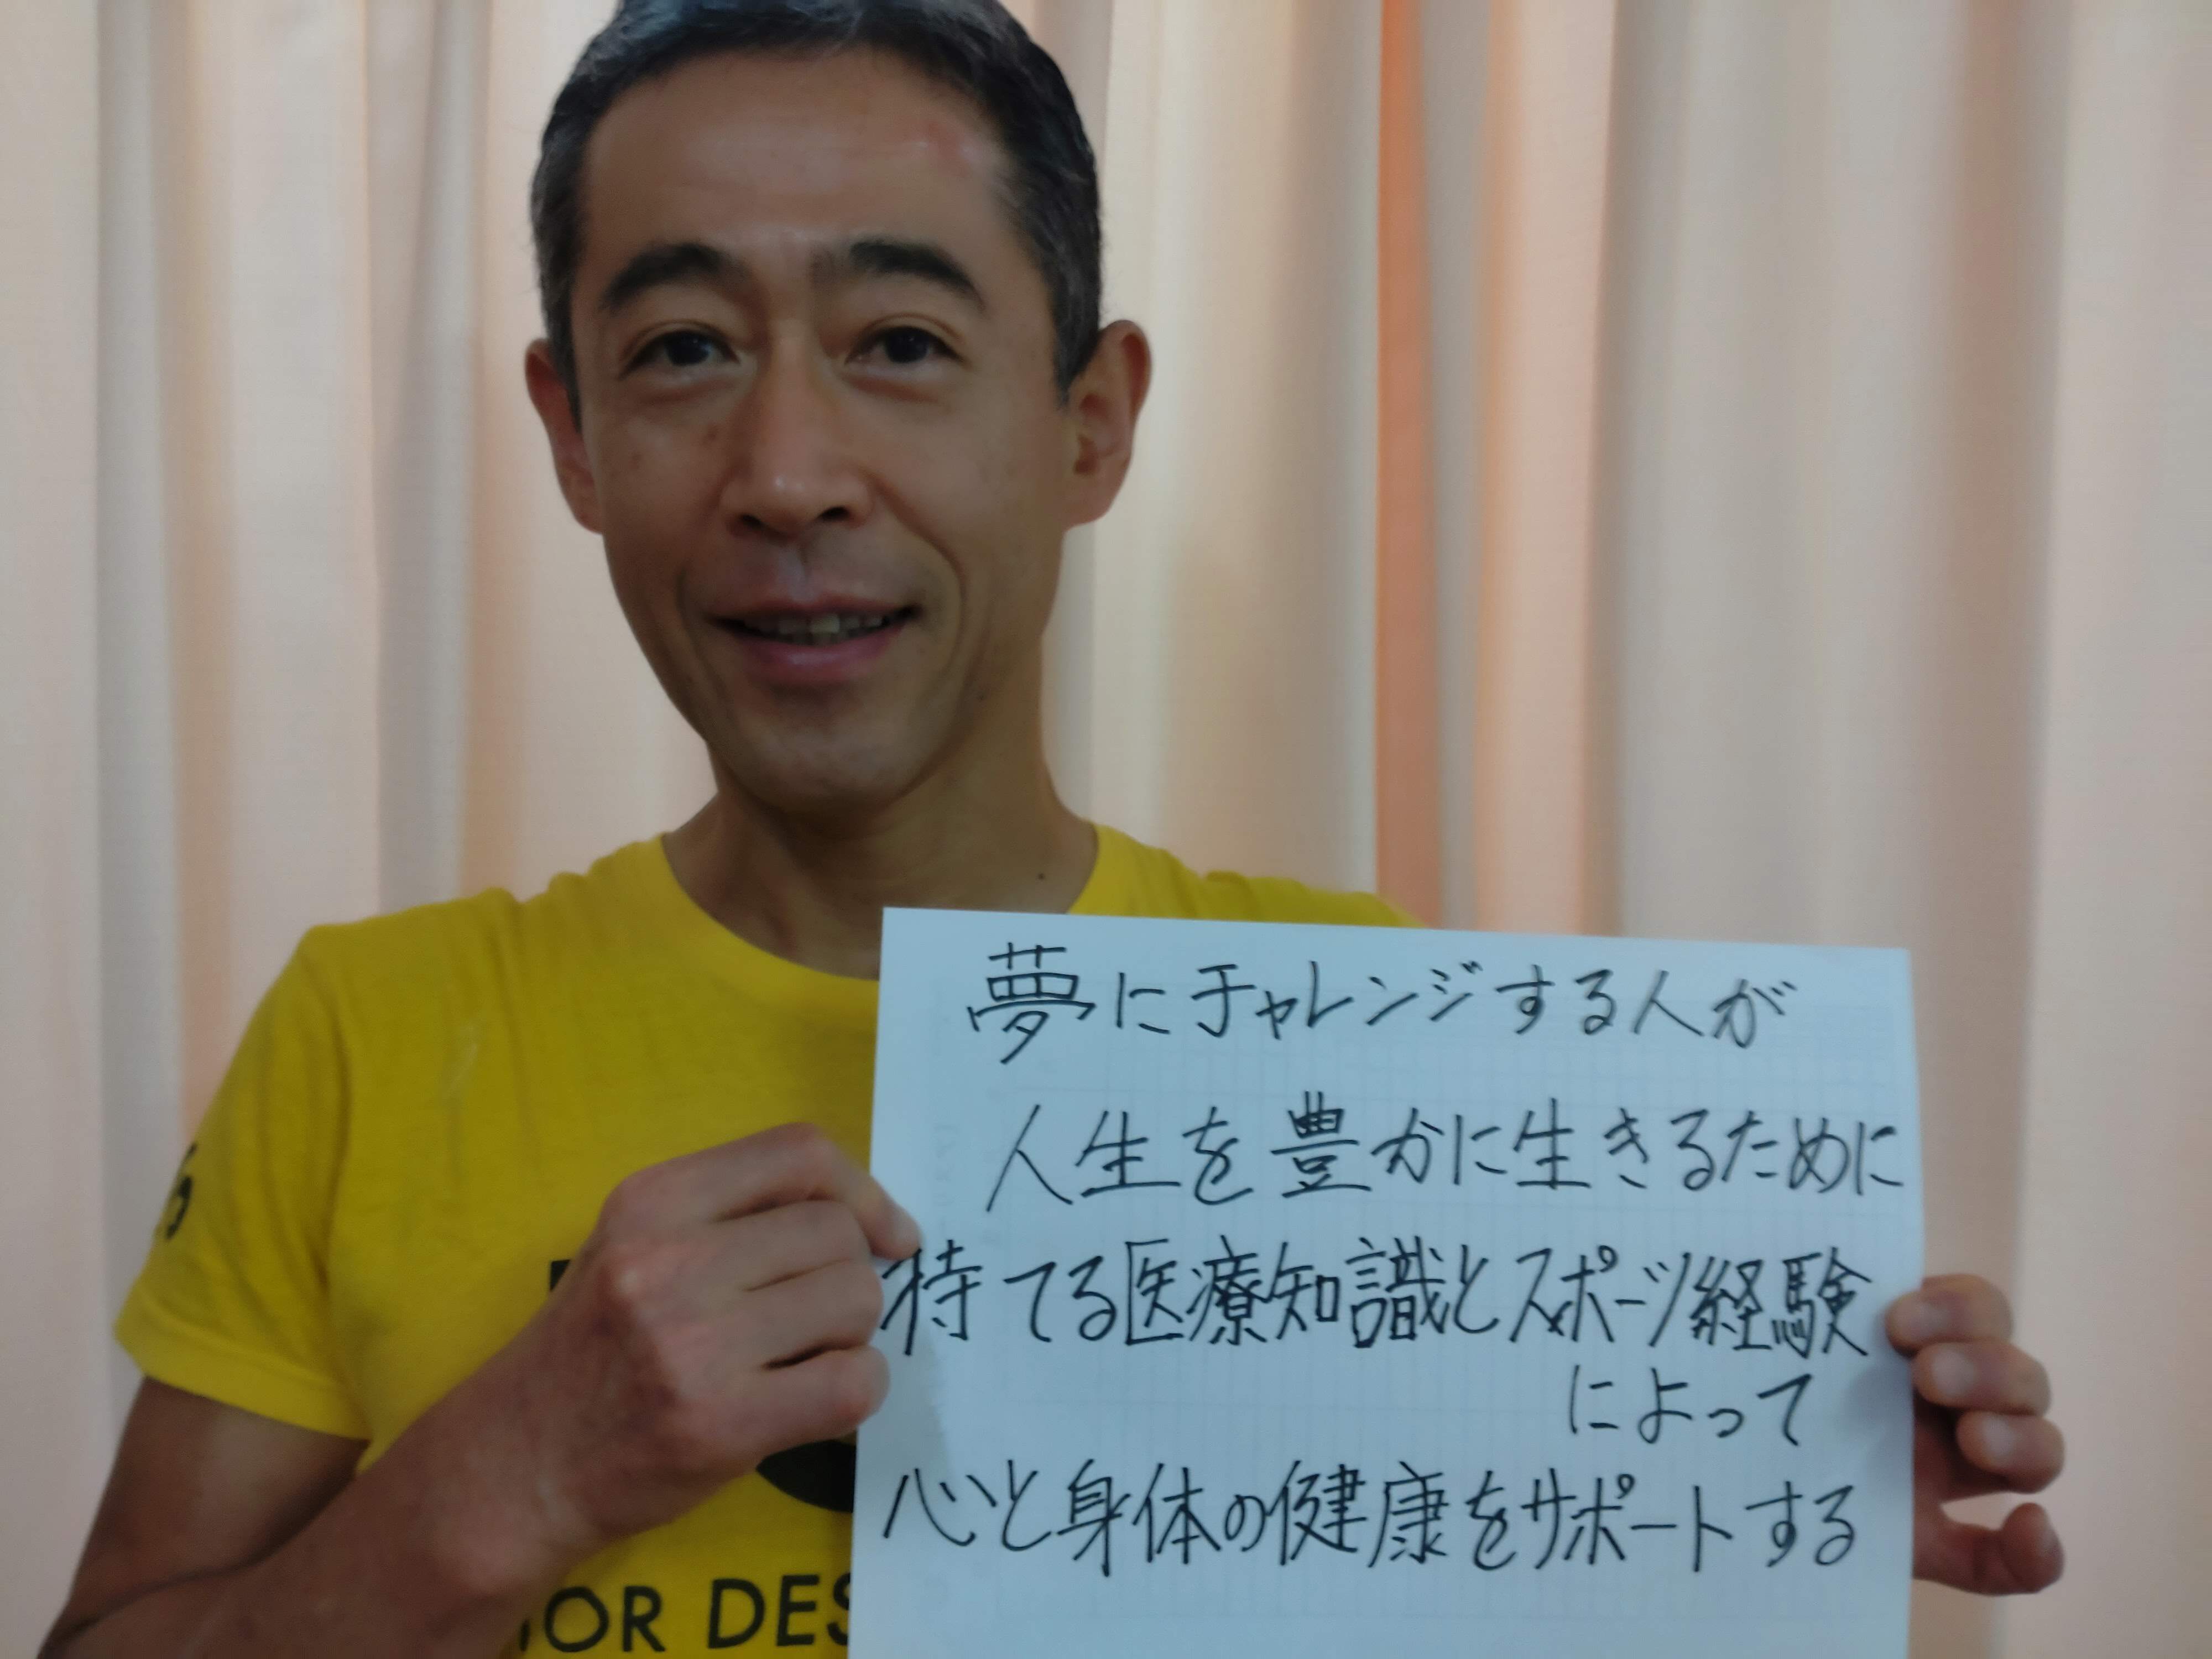 夢にチャレンジする人が
人生を豊かに生きるために
持てる医療知識とスポーツ経験
によって
心と身体の健康をサポートする